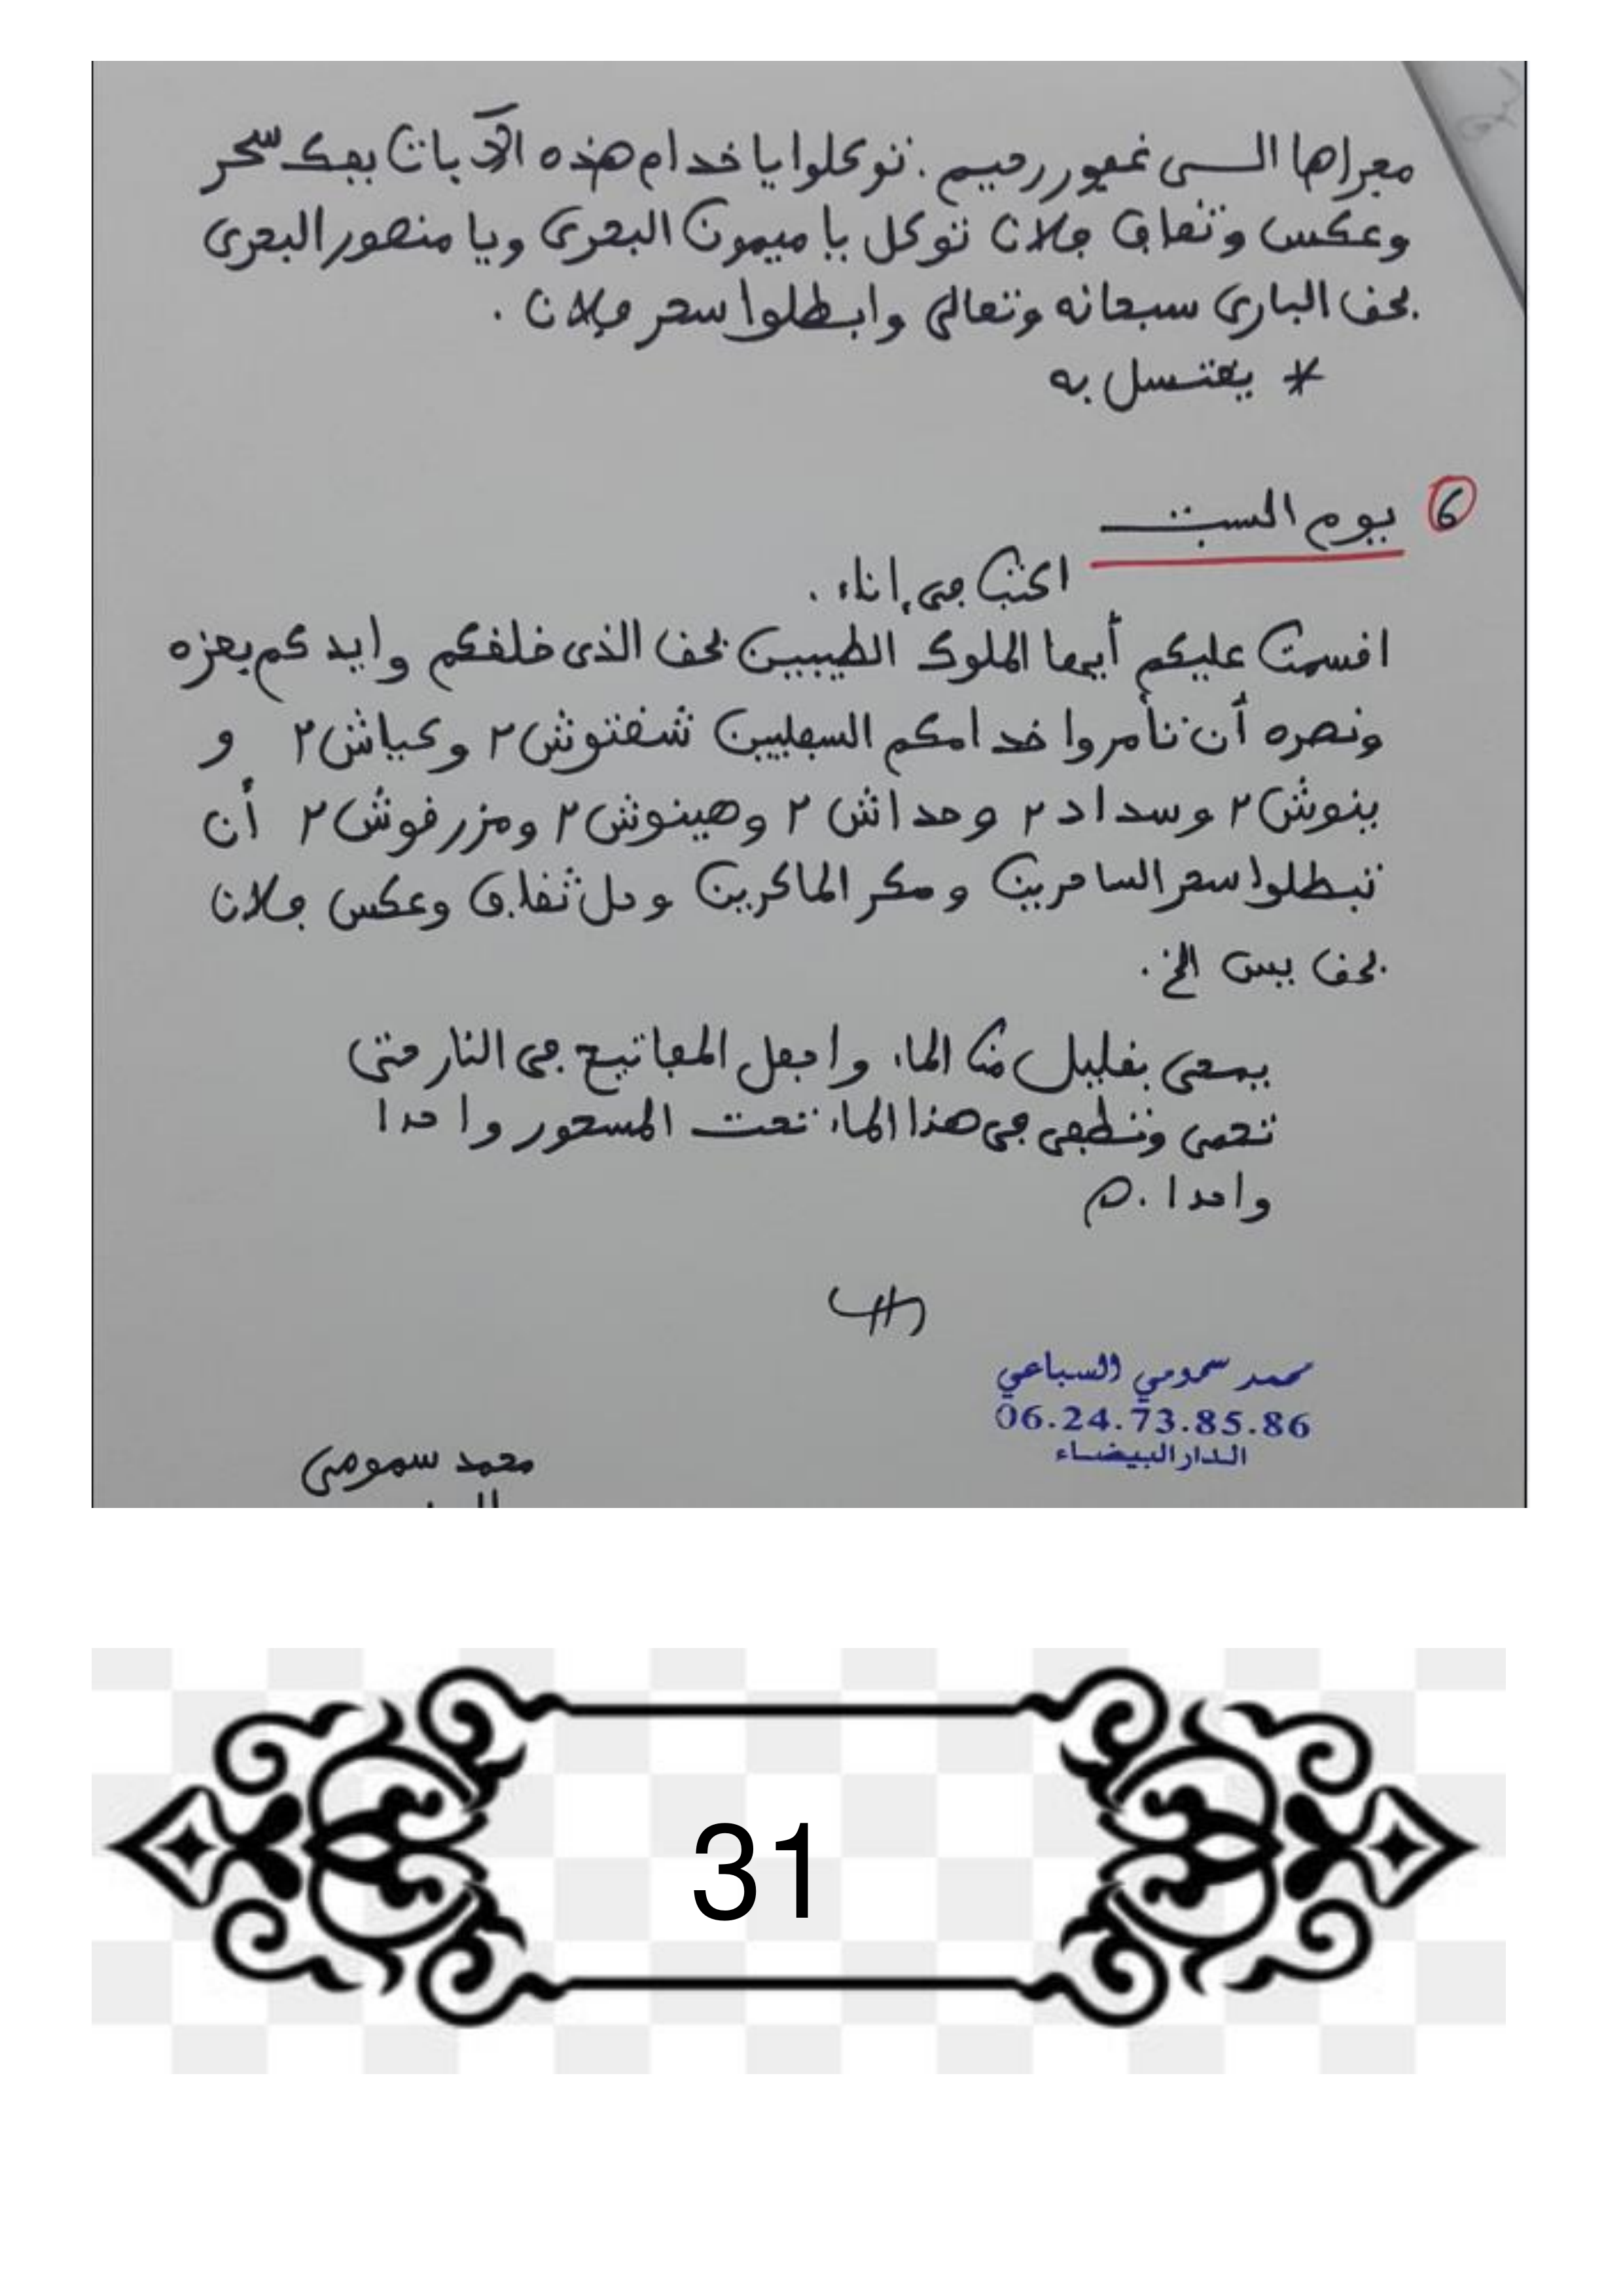 مجراها الـــى غفور رحيم . توكلوا يا خدام هذه الآيات بفك سحر
وعكس وثقاف فلان توكل يا ميمون البحرى ويا منصور البحرى
بحق البارئ سبحانه وتعالى وابطلوا سحر فلان .
* يغتسل به
6 يوم السبت
اكتب فى إناء .
اقسمت عليكم أيها الملوك الطيبين بحق الذى خلقكم وايدكم بعزه
ونصره أن تأمروا خدامكم السفليين شقتوش ٢ وعياش ٢ و
ينوش ٢ وسداد ٢ وحداش ٢ وهينوش ٢ ومزرقوش ٢ أن
تبطلوا سحر الساحرين ومكر الماكرين وحل ثقاف وعكس فلان
بحق يس الخ .
يمحى بقليل من الماء واجعل المفاتيح فى النار حتى
تحمى وتطفى فى هذا الماء تحت المسحور واحدا
واحدا . ه
محمد سمومي السباعي
06.24.73.85.86
الدار البيضاء
محمد سمومى
31